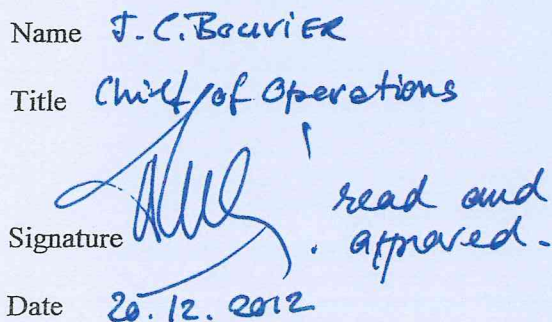 Name J.C. Bouvier
Title Chief of Operations
read and
Signature approved.
Date 20.12.2012